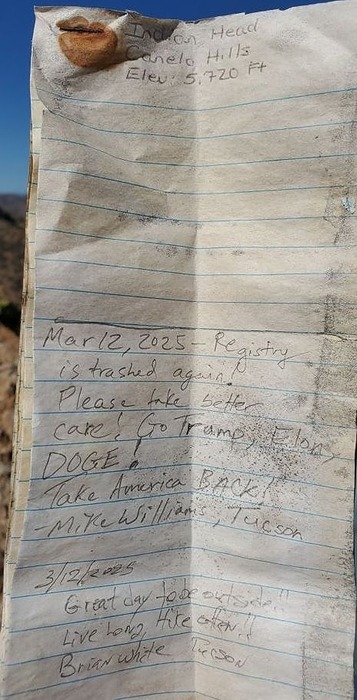 Indian Head
Canelo Hills
Elev: 5,720 Ft
Mar 12, 2025 - Registry
is trashed again!
Please take better
care! Go Trump, Elon,
DOGE!
Take America BACK!
- Mike Williams, Tucson
3/12/2025
Great day to be outside!!
Live Long, Hike often!!
Brian White Tucson